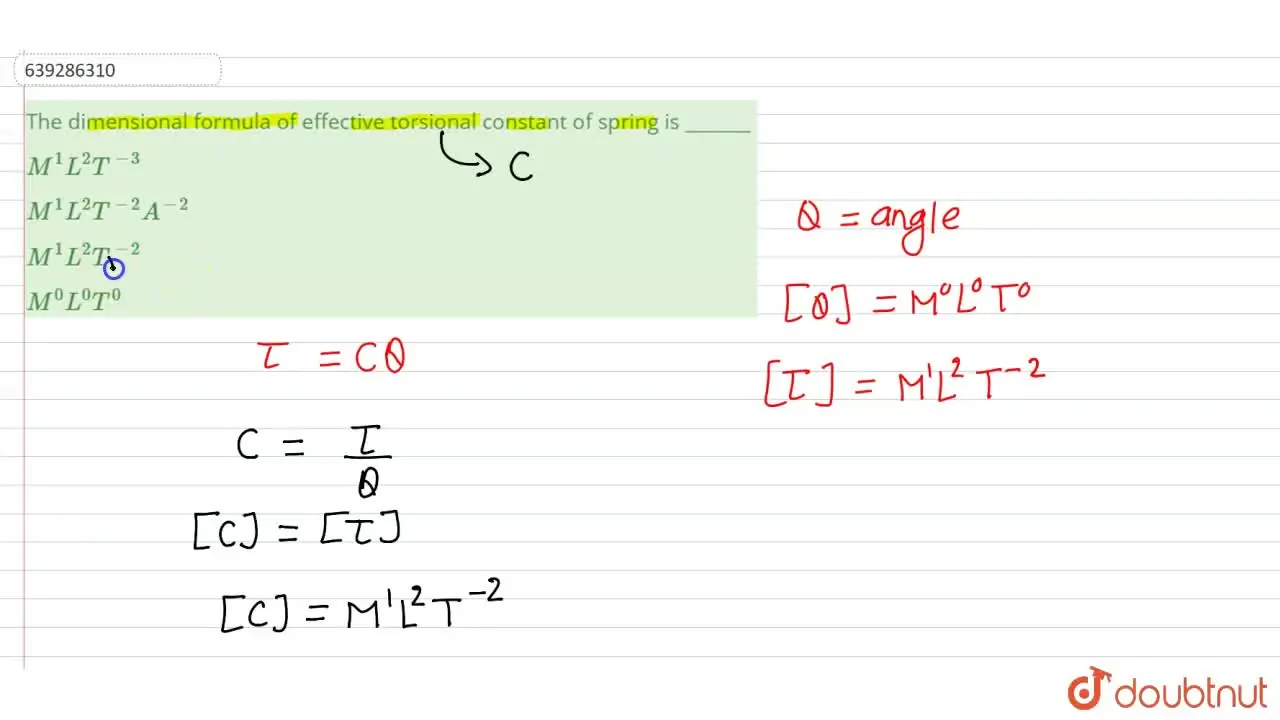 639286310
The dimensional formula of effective torsional constant of spring is ______
M¹L²T⁻³
M¹L²T⁻²A⁻²
M¹L²T⁻²
M⁰L⁰T⁰
C
θ = angle
[θ] = M⁰L⁰T⁰
[τ] = M¹L²T⁻²
τ = Cθ
C = τ/θ
[C] = [τ]
[C] = M¹L²T⁻²
doubtnut